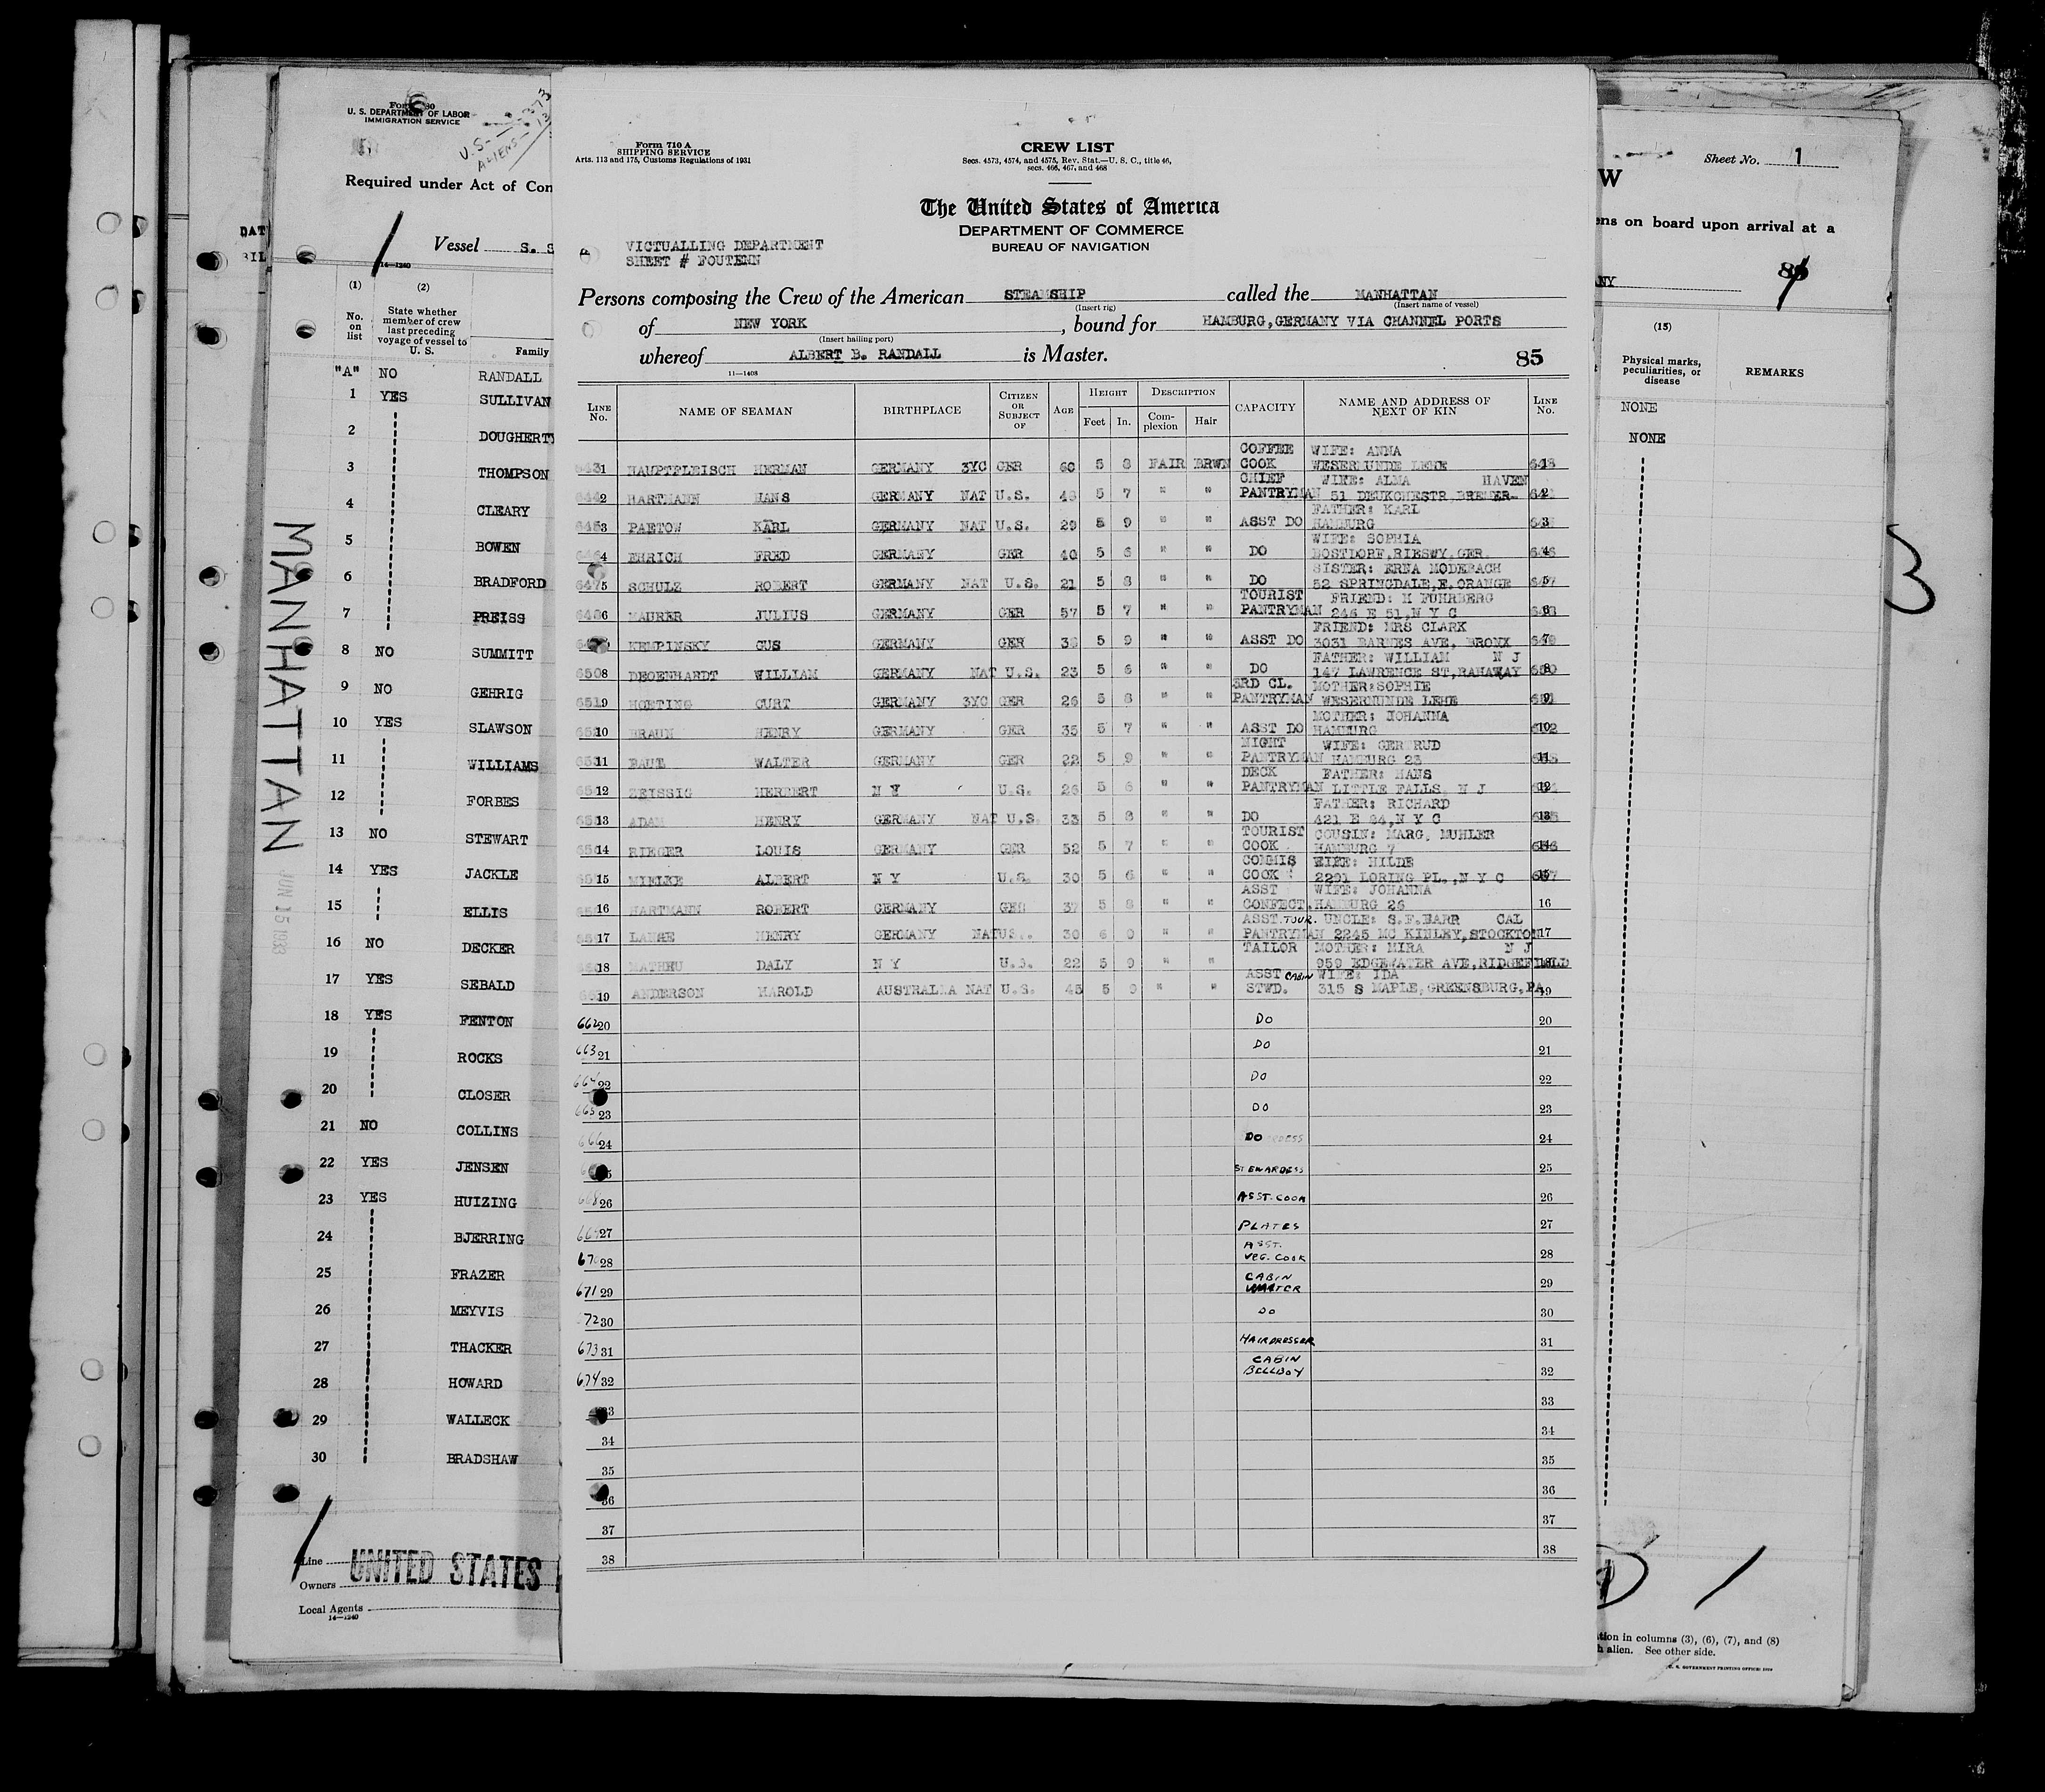 Form 710 A
SHIPPING SERVICE
Arts. 113 and 175, Customs Regulations of 1931
CREW LIST
Secs. 4573, 4574, and 4575, Rev. Stat.—U. S. C., title 46,
secs. 466, 467, and 468
The United States of America
DEPARTMENT OF COMMERCE
BUREAU OF NAVIGATION
VICTUALLING DEPARTMENT
SHEET # FOUTENN
Persons composing the Crew of the American STEAMSHIP called the MANHATTAN
(Insert rig) (Insert name of vessel)
of NEW YORK, bound for HAMBURG, GERMANY VIA CHANNEL PORTS
(Insert hailing port)
whereof ALBERT B. RANDALL is Master. 85
11—1408
LINE No. NAME OF SEAMAN BIRTHPLACE CITIZEN OR SUBJECT OF AGE HEIGHT Feet In. DESCRIPTION Complexion Hair CAPACITY NAME AND ADDRESS OF NEXT OF KIN LINE No.
COFFEE WIFE: ANNA
1 HAUPTFLEISCH HERMAN GERMANY 3YC GER 60 5 8 FAIR BRWN COOK WESERMUNDE LEHE
CHIEF WIFE: ALMA HAVEN
2 HARTMANN HANS GERMANY NAT U.S. 5 7 " " PANTRYMAN 51 DEUKCHESTR, BREMER- 2
FATHER: KARL
3 PAETOW KARL GERMANY NAT U.S. 29 5 9 " " ASST DO HAMBURG 3
WIFE: SOPHIA
4 EHRICH FRED GERMANY GER 40 5 6 " " DO BOSTDORF, RIESWY, GER. 4
SISTER: ERNA MODEBACH
5 SCHULZ ROBERT GERMANY NAT U.S. 21 5 8 " " DO 52 SPRINGDALE, E. ORANGE 5
TOURIST FRIEND: M FUHRBERG
6 MAURER JULIUS GERMANY GER 57 5 7 " " PANTRYMAN 246 E 51, N Y C 6
FRIEND: MRS CLARK
KEMPINSKY GUS GERMANY GER 36 5 9 " " ASST DO 3031 BARNES AVE, BRONX 7
FATHER: WILLIAM N J
6508 DEGENHARDT WILLIAM GERMANY NAT U.S. 23 5 6 " " DO 147 LAWRENCE ST, RAHAWAY 8
3RD CL. MOTHER: SOPHIE
6519 HOETING CURT GERMANY 3YC GER 26 5 8 " " PANTRYMAN WESERMUNDE LEHE 9
MOTHER: JOHANNA
10 BRAUN HENRY GERMANY GER 35 5 7 " " ASST DO HAMBURG 10
NIGHT WIFE: GERTRUD
11 WALTER GERMANY GER 22 5 9 " " PANTRYMAN HAMBURG 23
DECK FATHER: HANS
12 ZEISSIG HERBERT N Y U.S. 26 5 6 " " PANTRYMAN LITTLE FALLS, N J 12
FATHER: RICHARD
13 ADAM HENRY GERMANY NAT U.S. 33 5 8 " " DO 421 E 84, N Y C 13
TOURIST COUSIN: MARG. MUHLER
14 RIEGER LOUIS GERMANY GER 52 5 7 " " COOK HAMBURG 7
COMMIS WIFE: HILDE
15 MIELKE ALBERT N Y U.S. 30 5 6 " " COOK 2291 LORING PL., N Y C
ASST WIFE: JOHANNA
16 HARTMANN ROBERT GERMANY GER 37 5 8 " " CONFECT. HAMBURG 26 16
ASST. TOUR. UNCLE: S.F. BARR CAL
17 HENRY GERMANY NAT U.S. 30 6 0 " " PANTRYMAN 2245 MC KINLEY, STOCKTON 17
TAILOR MOTHER: MIRA N J
18 MATHEU DALY N Y U.S. 22 5 9 " " 959 EDGEWATER AVE, RIDGEFIELD
ASST CABIN WIFE: IDA
19 ANDERSON HAROLD AUSTRALIA NAT U.S. 45 5 9 " " STWD. 315 S MAPLE, GREENSBURG, PA 19
662 20 DO 20
663 21 DO 21
664 22 DO 22
665 23 DO 23
666 24 DO 24
STEWARDESS 25
668 26 ASST. COOK 26
669 27 PLATES 27
670 28 ASST. VEG. COOK 28
671 29 CABIN WAITER 29
72 30 DO 30
673 31 HAIRDRESSER 31
674 32 CABIN BELLBOY 32
33 33
34 34
35 35
36 36
37 37
38 38
U. S. DEPARTMENT OF LABOR
IMMIGRATION SERVICE
U.S.-
ALIENS-
Required under Act of Con
Vessel S. S
14—1240
(1) (2)
No. on list State whether member of crew last preceding voyage of vessel to U. S. Family
"A" NO RANDALL
1 YES SULLIVAN
2 DOUGHERTY
3 THOMPSON
4 CLEARY
5 BOWEN
6 BRADFORD
7 PREISS
8 NO SUMMITT
9 NO GEHRIG
10 YES SLAWSON
11 WILLIAMS
12 FORBES
13 NO STEWART
14 YES JACKLE
15 ELLIS
16 NO DECKER
17 YES SEBALD
18 YES FENTON
19 ROCKS
20 CLOSER
21 NO COLLINS
22 YES JENSEN
23 YES HUIZING
24 BJERRING
25 FRAZER
26 MEYVIS
27 THACKER
28 HOWARD
29 WALLECK
30 BRADSHAW
Line
Owners UNITED STATES
Local Agents
14—1240
MANHATTAN
JUN 15 1933
DAT
Sheet No. 1
W
ens on board upon arrival at a
NY
(15)
Physical marks, peculiarities, or disease REMARKS
NONE
NONE
3
1
ation in columns (3), (6), (7), and (8)
h alien. See other side.
U. S. GOVERNMENT PRINTING OFFICE